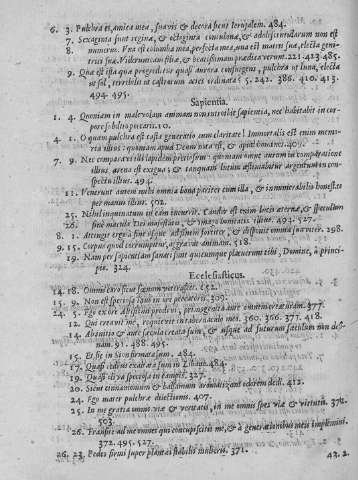 6. 3. Pulchra es, amica mea, suavis & decora sicut Ierusalem. 484.
7. Sexaginta sunt reginæ, & octoginta concubinæ, & adolescentularum non est
8. numerus. Una est columba mea, perfecta mea, una est matri suæ, electa geni-
trici suæ. Viderunt eam filiæ, & beatissimam prædicaverunt. 221. 423. 485.
9. Quæ est ista quæ progreditur quasi aurora consurgens, pulchra ut luna, electa
ut sol, terribilis ut castrorum acies ordinata? 5. 242. 386. 410. 413.
494. 495.
Sapientia.
1. 4. Quoniam in malevolam animam non introibit sapientia, nec habitabit in cor-
pore subdito peccatis. 10.
4. 1. O quam pulchra est casta generatio cum claritate! Immortalis est enim memo-
ria illius: quoniam apud Deum nota est, & apud homines. 409.
7. 9. Nec comparavi illi lapidem pretiosum: quoniam omne aurum in comparatione
illius, arena est exigua; & tanquam lutum æstimabitur argentum in con-
spectu illius. 494.
11. Venerunt autem mihi omnia bona pariter cum illa, & innumerabilis honestas
per manus illius. 502.
25. Nihil inquinatum in eam incurrit. Candor est enim lucis æternæ, & speculum
26. sine macula Dei majestatis, & imago bonitatis illius. 494. 527.
8. 1. Attingit ergo à fine usque ad finem fortiter, & disponit omnia suaviter. 298.
9. 15. Corpus quod corrumpitur, aggravat animam. 518.
19. Nam per sapientiam sanati sunt quicumque placuerunt tibi, Domine, à princi-
pio. 324.
Ecclesiasticus.
14. 18. Omnis caro sicut fœnum veterascet. 652.
15. 9. Non est speciosa laus in ore peccatoris. 309.
24. 5. Ego ex ore Altissimi prodivi, primogenita ante omnem creaturam. 377.
12. Qui creavit me, requievit in tabernaculo meo. 360. 366. 377. 418.
14. Ab initio & ante sæcula creata sum, & usque ad futurum sæculum non desi-
nam. 91. 488. 495.
15. Et sic in Sion firmata sum. 484.
17. Quasi cedrus exaltata sum in Libano. 484.
19. Quasi oliva speciosa in campis. 327.
20. Sicut cinnamomum & balsamum aromatizans odorem dedi. 412.
24. Ego mater pulchræ dilectionis. 407.
25. In me gratia omnis viæ & veritatis, in me omnis spes vitæ & virtutis. 374.
503.
26. Transite ad me omnes qui concupiscitis me, & à generationibus meis implemini.
372. 495. 527.
26. 23. Pedes firmi super plantas stabilis mulieris. 371.
42. 2.